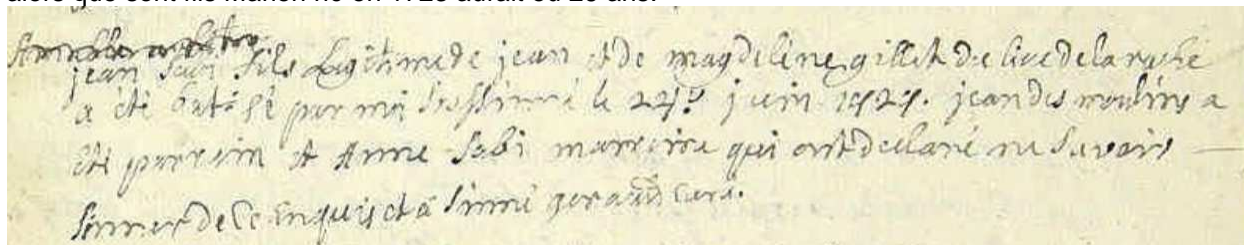 alors que sont fils Marien né en 1723 aurait eu 20 ans.
jean fils Legitime de jean et de magdeleine gillet du lieu de la roche
a été batisé par moi soussinné le 22? juin 1727. jean des moulins a
été parrein et Anne Sabi marreine qui ont declaré ne savoir
sinner de ce enquis et a sinné geraud curé.